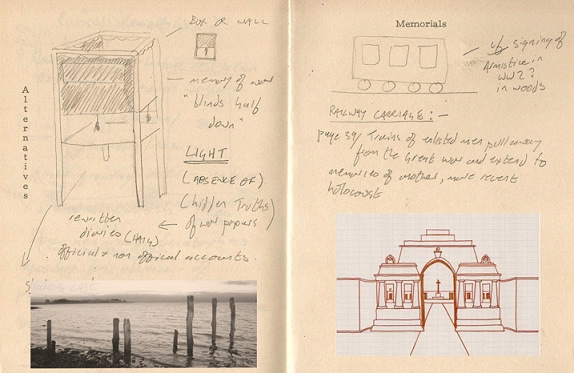 Alternatives
BOX OR WALL
memory of war
"blinds half
down"
LIGHT
(ABSENCE OF)
(Hidden Truths)
of war
rewritten
diaries (HAIG)
official & non official accounts.
Memorials
signing of
Armistice in
WW2?
in woods
RAILWAY CARRIAGE:-
page 59/ Trains of enlisted men pull away
from the Great war and extend to
memories of another, more recent
holocaust